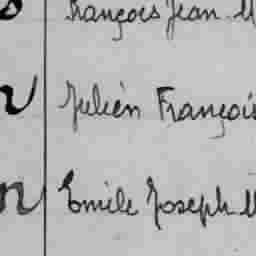 François Jean M
Julien François
Emile Joseph M